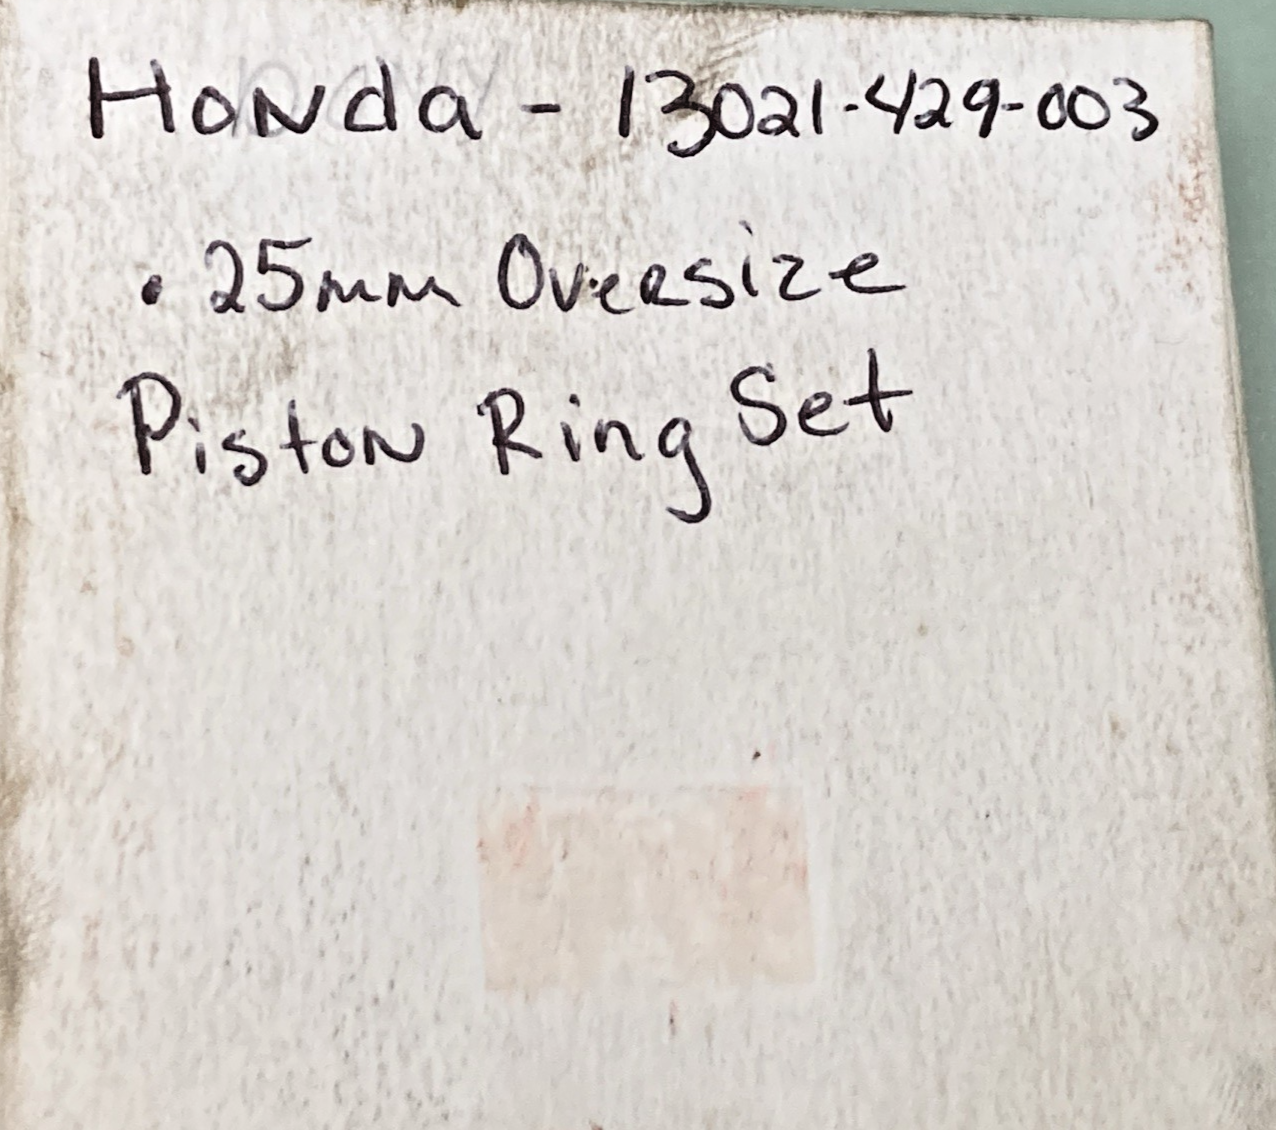 Honda - 13021-429-003
.25mm Oversize
Piston Ring Set